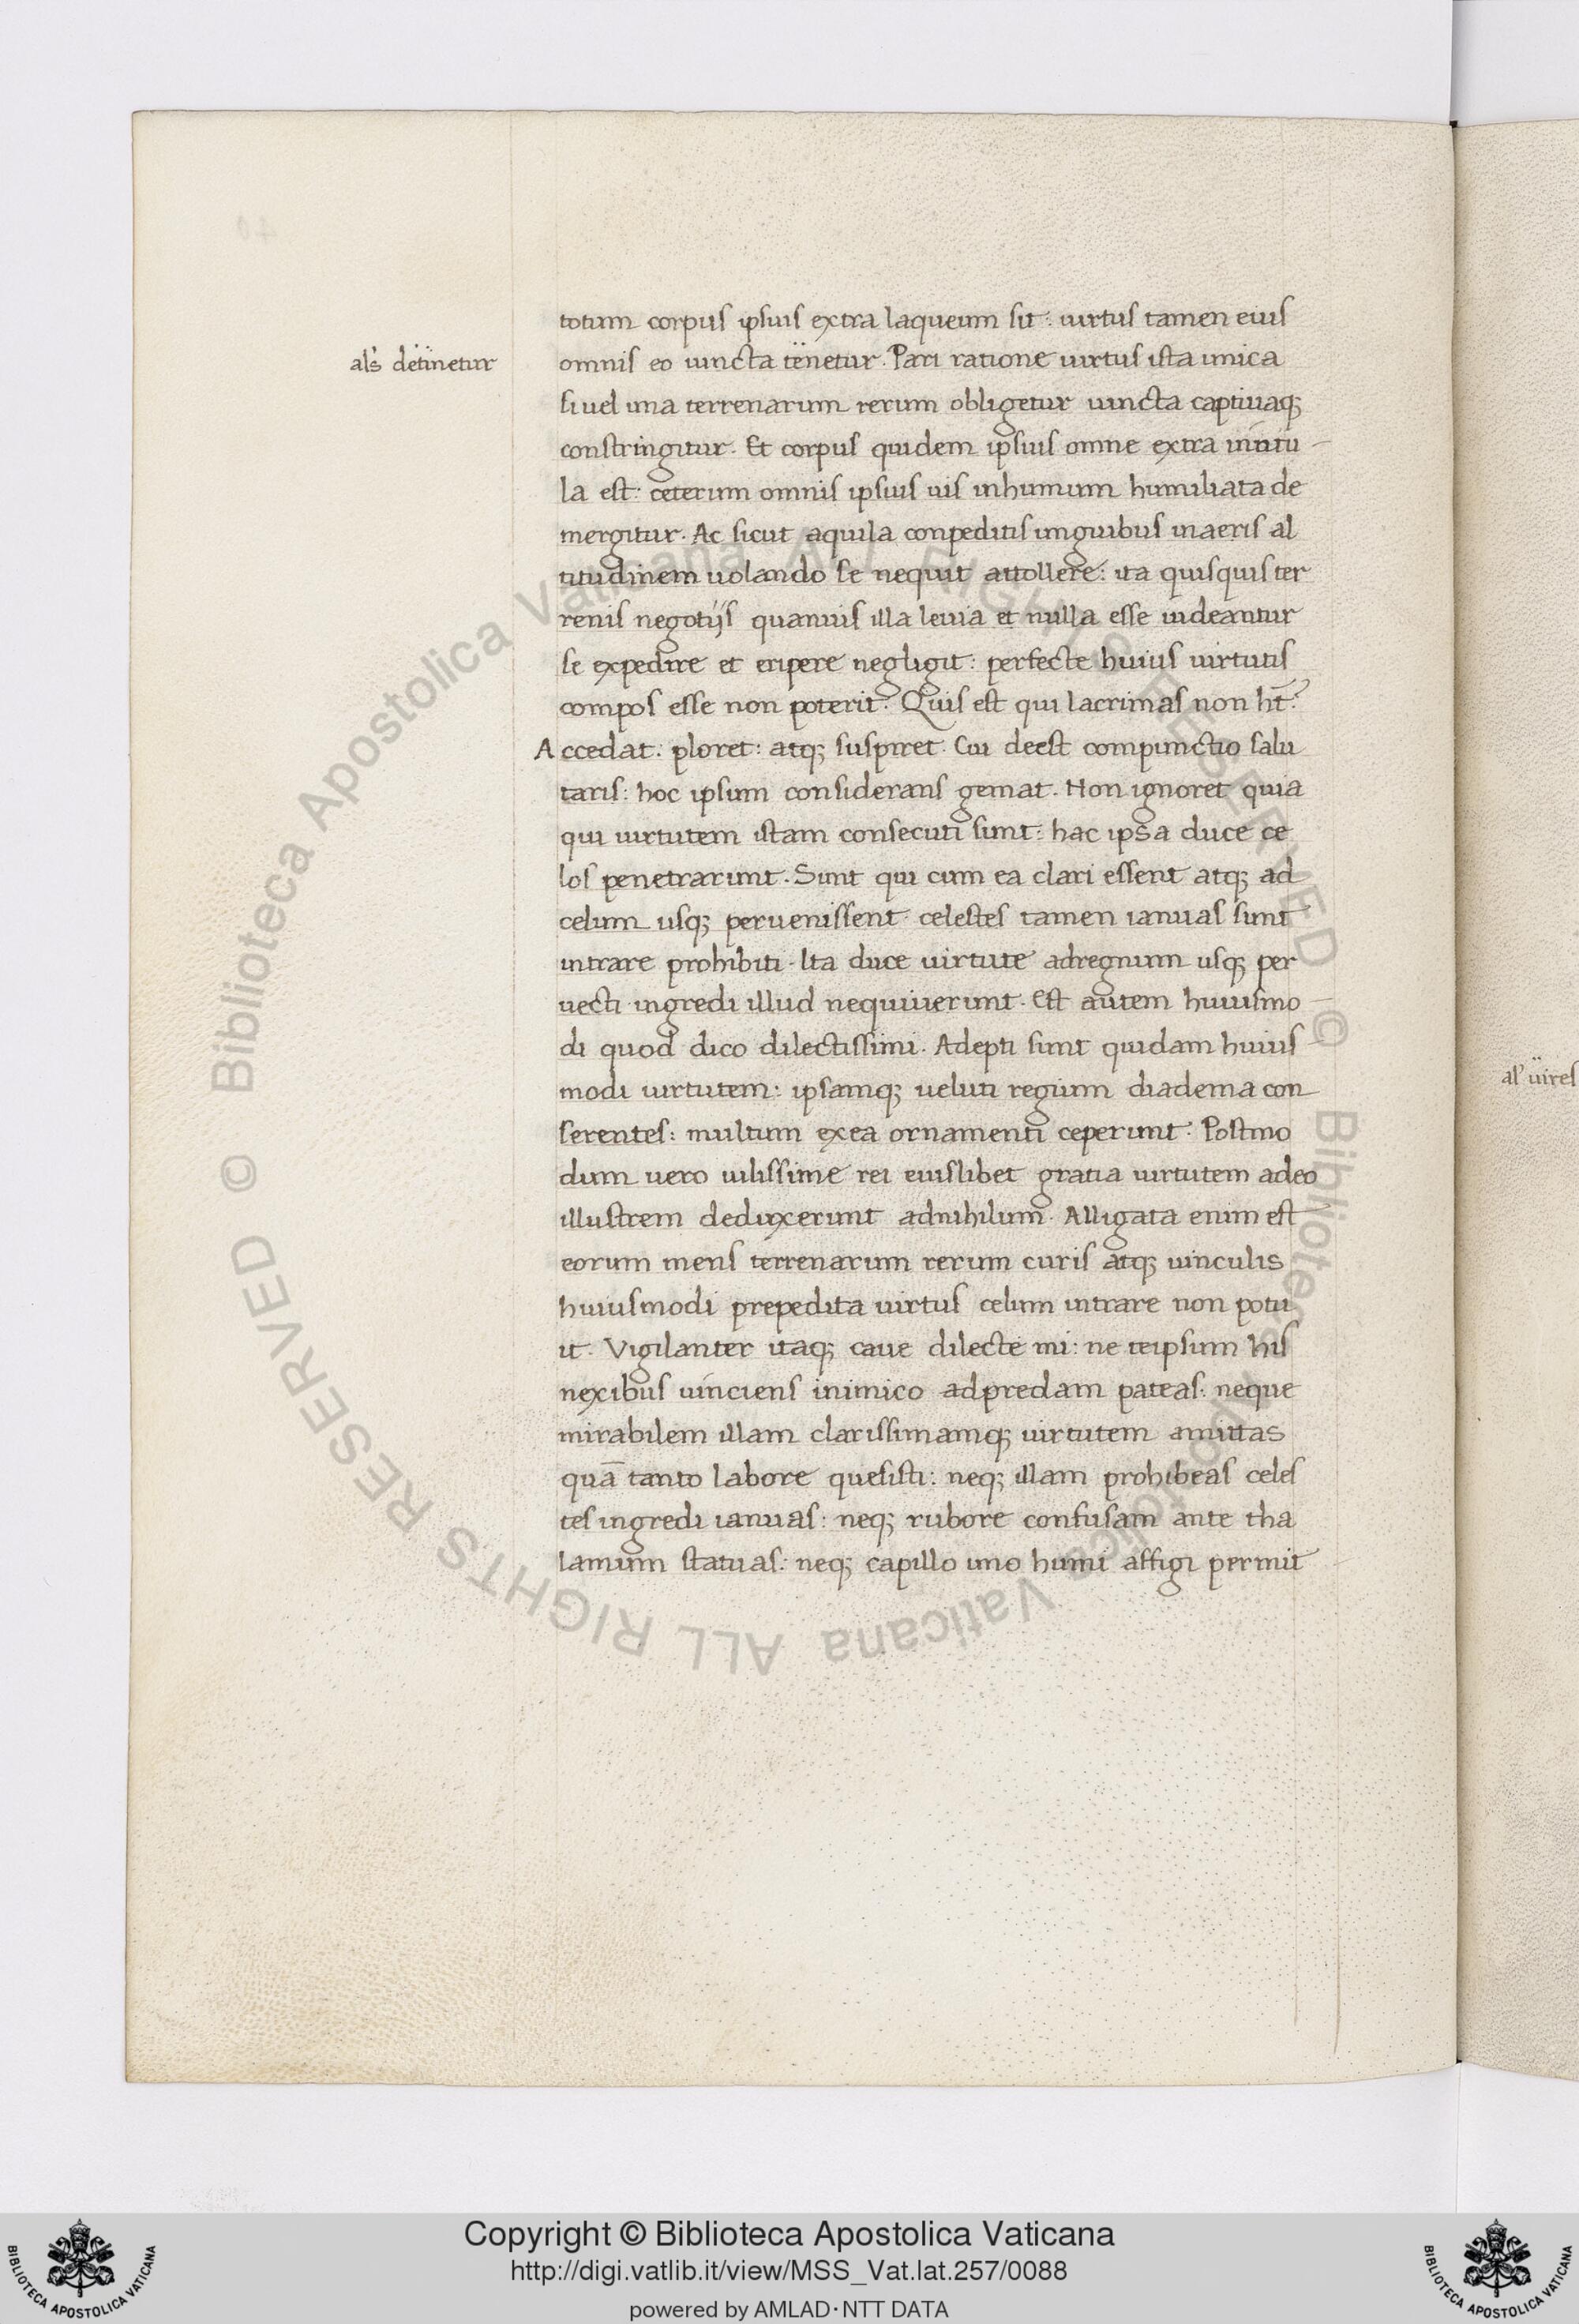 totum corpus ipsius extra laqueum sit: uirtus tamen eius
als detinetur
omnis eo uincta tenetur. Pari ratione uirtus ista unica
si uel una terrenarum rerum obligetur uincta captiuaq;
constringitur. Et corpus quidem ipsius omne extra
la est: ceterum omnis ipsius uis inhumum humiliata de
mergitur. Ac sicut aquila conpeditis unguibus inaeris al
titudinem uolando se nequit attollere: ita quisquis ter
renis negotijs quamuis illa leuia et nulla esse uideantur
se expedire et eripere negligit: perfecte huius uirtutis
compos esse non poterit. Quis est qui lacrimas non ht̄?
Accedat: ploret: atq; suspiret. Cui deest compunctio salu
taris: hoc ipsum considerans gemat. Non ignoret quia
qui uirtutem istam consecuti sunt: hac ipsa duce ce
los penetrarunt. Sunt qui cum ea clari essent atq; ad
celum usq; peruenissent celestes tamen ianuas sunt
intrare prohibiti. Ita duce uirtute adregnum usq; per
uecti ingredi illud nequiuerunt. Est autem huiusmo
di quod dico dilectissimi. Adepti sunt quidam huius
modi uirtutem: ipsamq; ueluti regium diadema con
serentes: multum exea ornamenti ceperunt. Postmo
dum uero uilissime rei euislibet gratia uirtutem adeo
illustrem deduxerunt adnihilum. Alligata enim est
eorum mens terrenarum rerum curis atq; uinculis
huiusmodi prepedita uirtus celum intrare non potu
it. Vigilanter itaq; caue dilecte mi: ne teipsum his
nexibus uinciens inimico adpredam pateas: neque
mirabilem illam clarissimamq; uirtutem amittas
quā tanto labore quesisti: neq; illam prohibeas celes
tes ingredi ianuas: neq; rubore confusam ante tha
lamum statuas: neq; capillo uno humi affigi permit
al' uires
© Biblioteca Apostolica Vaticana ALL RIGHTS RESERVED
© Biblioteca Apostolica Vaticana ALL RIGHTS RESERVED
Copyright © Biblioteca Apostolica Vaticana
http://digi.vatlib.it/view/MSS_Vat.lat.257/0088
powered by AMLAD·NTT DATA
BIBLIOTECA APOSTOLICA VATICANA
BIBLIOTECA APOSTOLICA VATICANA